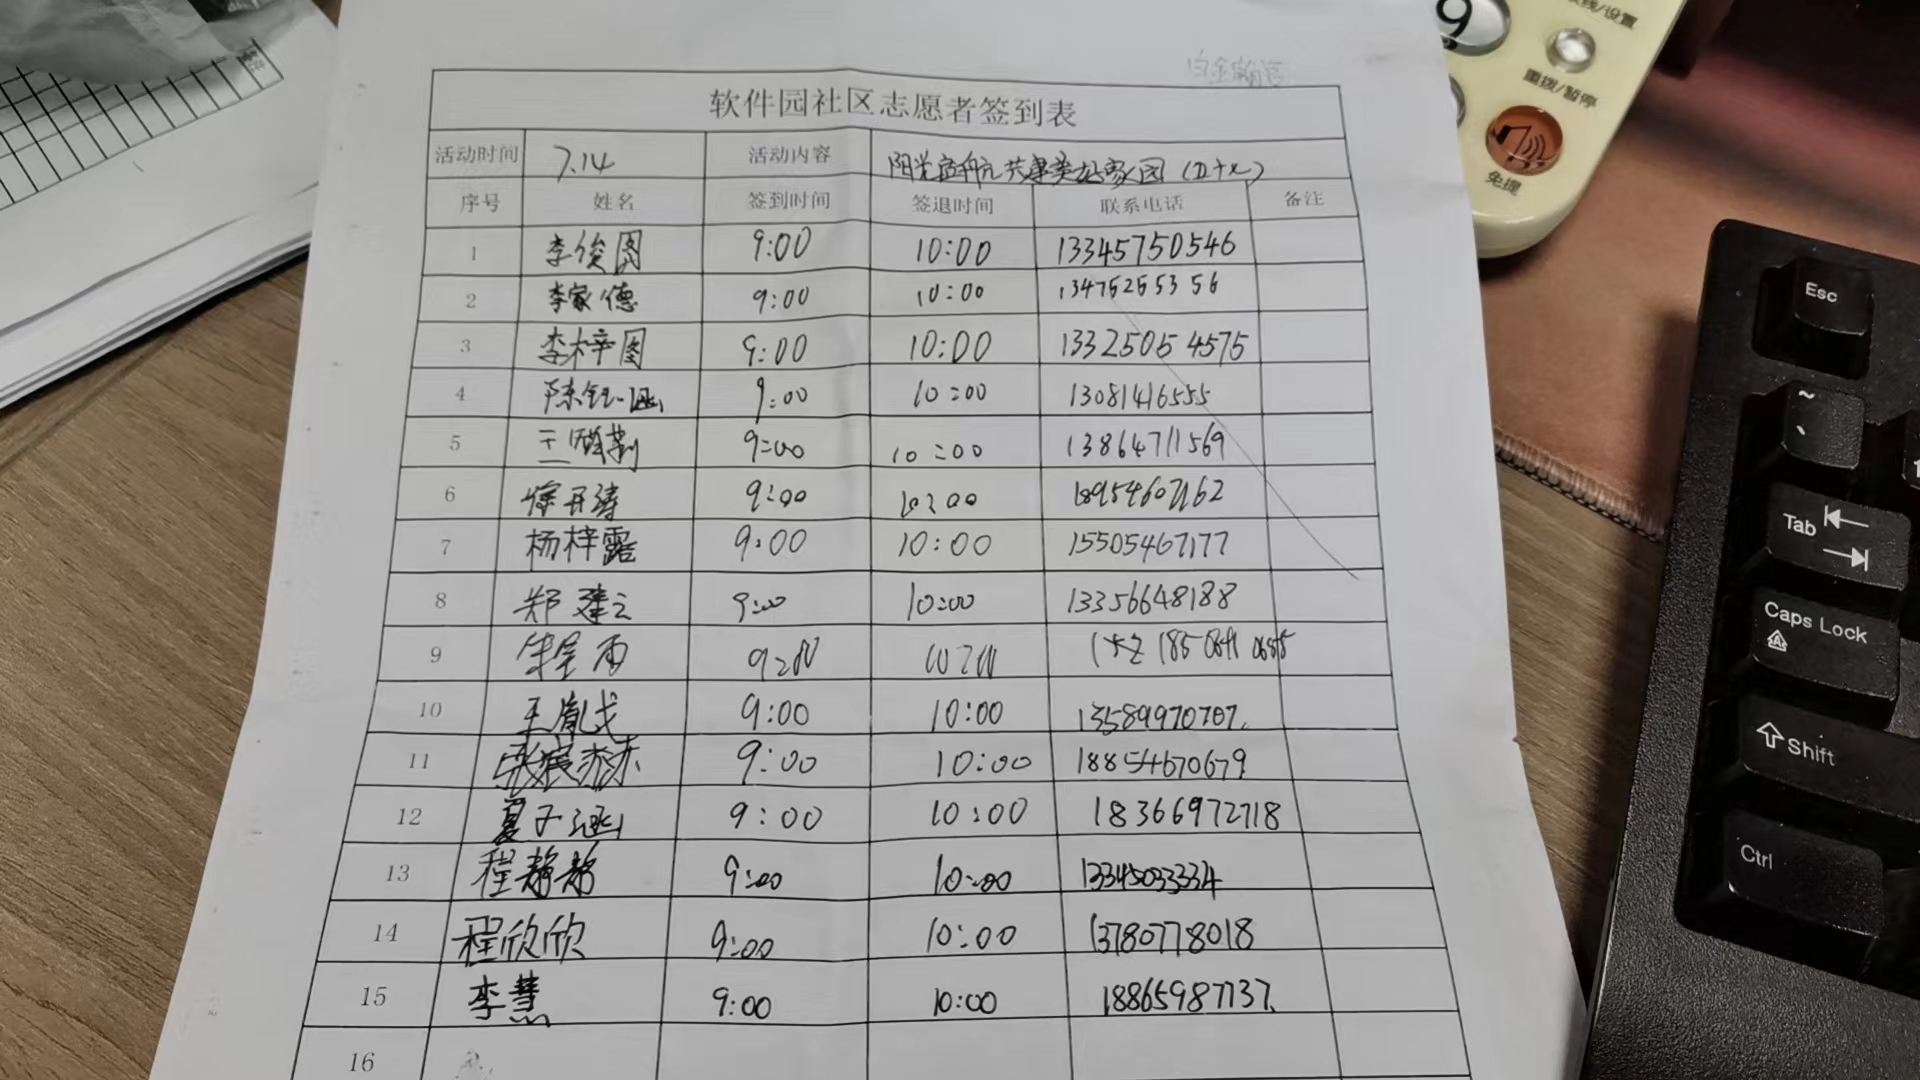 软件园社区志愿者签到表
活动时间 7.14 活动内容 阳光启航 共建美好家园(四十七)
序号 姓名 签到时间 签退时间 联系电话 备注
1 李俊图 9:00 10:00 13345750546
2 李家德 9:00 10:00 13475255356
3 李梓图 9:00 10:00 13325054575
4 陈钰涵 9:00 10:00 13081416555
5 王 9:00 10:00 13864711569
6 徐开涛 9:00 10:00 18954607162
7 杨梓露 9:00 10:00 15505467177
8 郑建云 9:00 10:00 13356648188
9 9:00 10:00
10 王胤戈 9:00 10:00 13589970707
11 张宸赫 9:00 10:00 18854670679
12 夏子涵 9:00 10:00 18366972718
13 程静静 9:00 10:00 13345033334
14 程欣欣 9:00 10:00 13780778018
15 李慧 9:00 10:00 18865987137
16
9
重拨/暂停
免提
Esc
~
Tab
Caps Lock
A
Shift
Ctrl